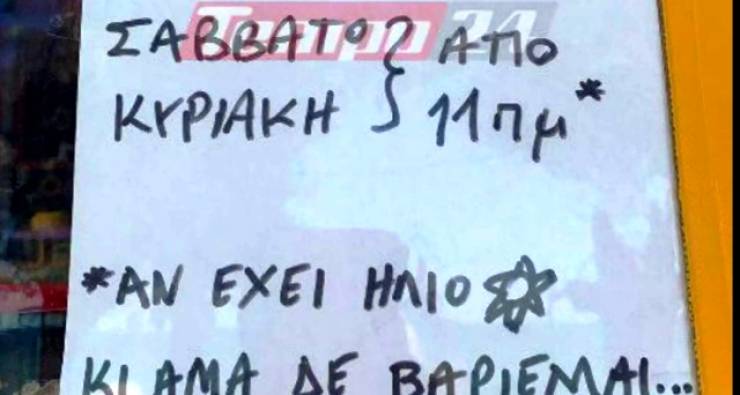 ΣΑΒΒΑΤΟ } ΑΠΟ
ΚΥΡΙΑΚΗ } 11πμ *
*ΑΝ ΕΧΕΙ ΗΛΙΟ
ΚΙ ΑΜΑ ΔΕ ΒΑΡΙΕΜΑΙ...